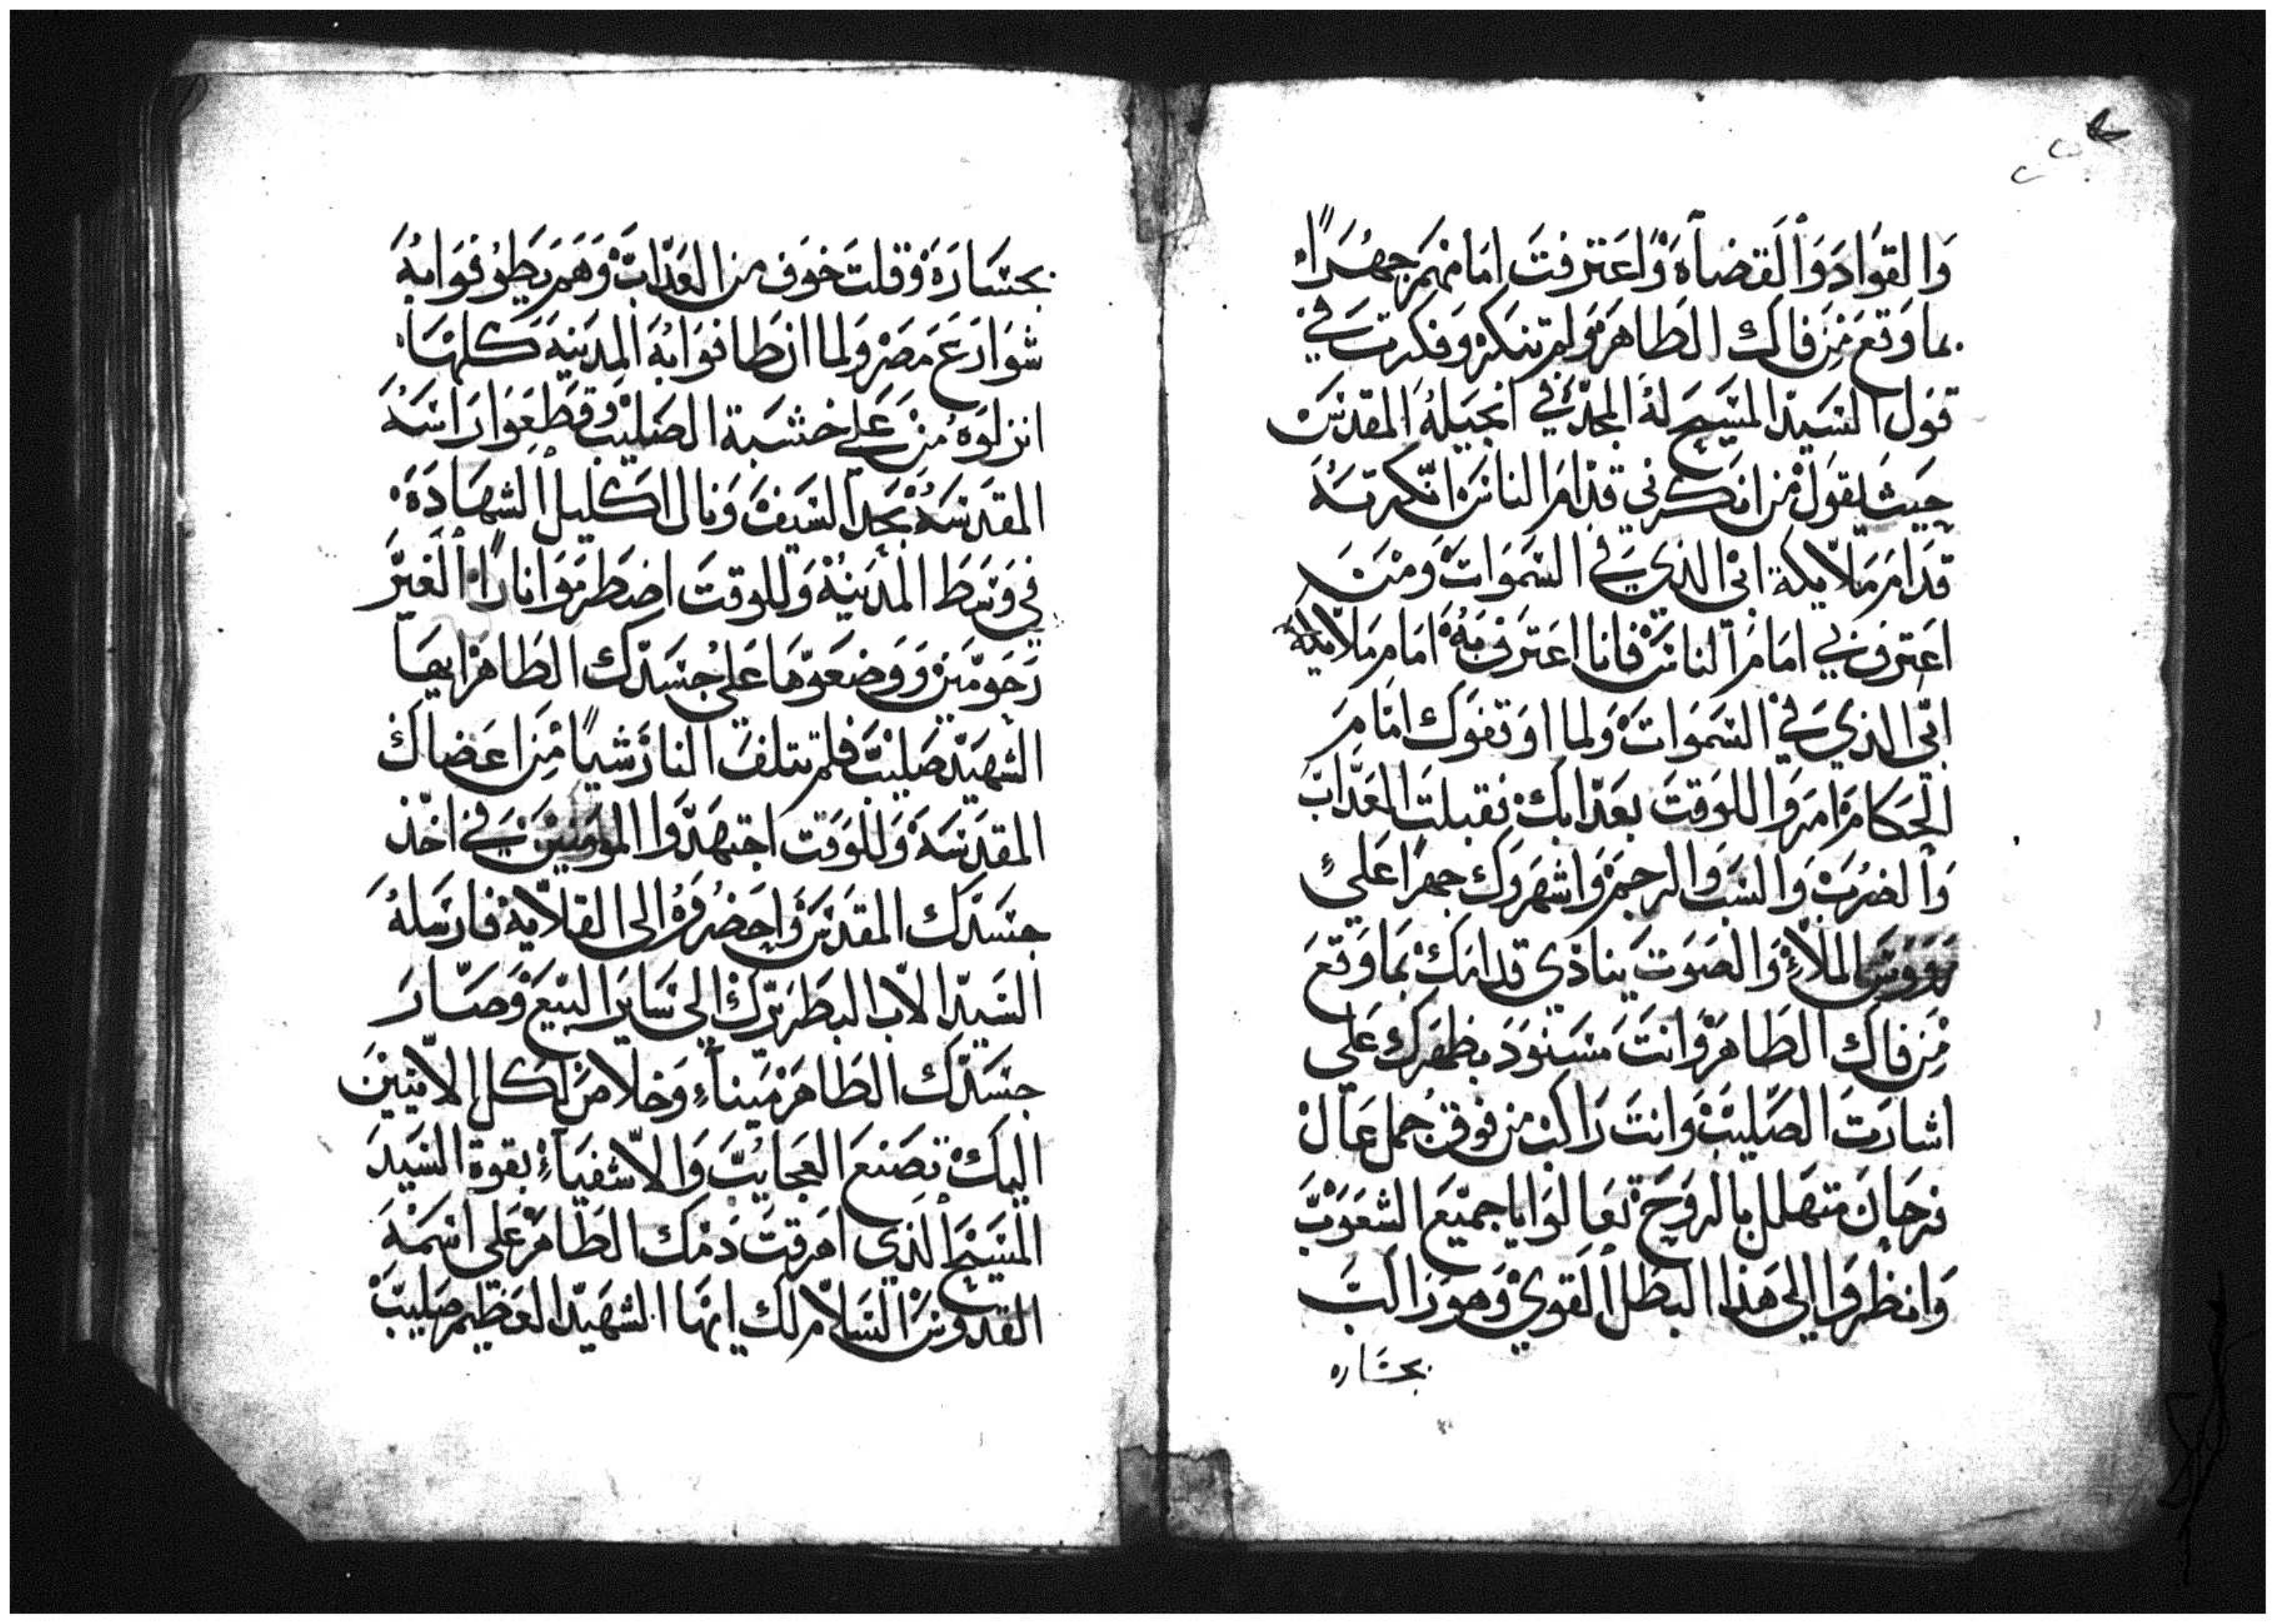 وَالقوَادَ وَالَقضاَةَ وَاعَتزفتَ امَامهَم جهُرًا
بما وَقعَ مَن فاك الطَاهَر وَلم تنكر وَفكرت في
قول السَيد المسَيح لهُ المجدَ في انجيَلهُ المقدسَ
حَيث يقول من انكرني قدام الناسَ انكرتهُ
قدام ملايكة ابي الذي في السَموَاتَ وَمنَ
اعترف بي امَام الناسَ فانا اعتَرف بهُ امَام ملايكة
ابي الذي في السَموَاتَ وَلما اوَتفوَك امَام
الحكام امرَوا للوَقتَ بعَدابك فقبلتَ العَدابَ
وَالضرب وَالسبَ وَالرجم وَاشهرَوك جهرًا عَلى
رووسَ الملاءِ وَالصَوت ينادي قدامك بمَا وَقعَ
مَن فاك الطَاهر وَانتَ مسَنوَد بظهرك عَلى
اشارَت الصَليبَ وَانتَ رَاكب من فوق جمل عَال
فرحَان متهَلل بالروَح تعَالوَا يا جميَع الشعَوبَ
وَانظروَا الي هَذا البطل القوي وَهو رَاكبَ
بجسَاره
بجسَارَة وَقلتَ خوَف من العَدابَ وَهَم يَطوُفوَا بهُ
شوَارَع مَصر وَلما ان طَافوَا بهُ المدَينة كلهَا
انزلوَهُ من عَلى خشبَة الصَليب وَقطعَوا رَاسَهُ
المقدسَهُ بحَد السَيف وَنال اكليل الشهادَة
في وَسَط المدَينة وَللوقتَ اضطرموَا نارًا الغَير
رَحوَمَين وَوضعَوهَا عَلى جُسَدك الطَاهر ايهَا
الشهَيد صَليبَ فلم تتلف النار شيًا من اعَضاك
المقدسَه وَللوَقت اجتهَدوا الموَمنينَ في اخذ
جسَدك المقدسَ وَاحضروَهُ الى القلاية فارسَلهُ
السَيد الاب البطَريَرك الى سَاير البيَع وَصَارَ
جسَدك الطَاهرَ ميناءِ وَخلاص لكل الاتيينَ
اليك تصَنع العَجايبَ وَالاشفيَاءِ بقوة السَيد
المسَيح الذي اهرقتَ دَمك الطَاهر عَلى اسَمهُ
القدوسَ السَلام لك ايهَا الشهَيد العَظيم صَليبَ